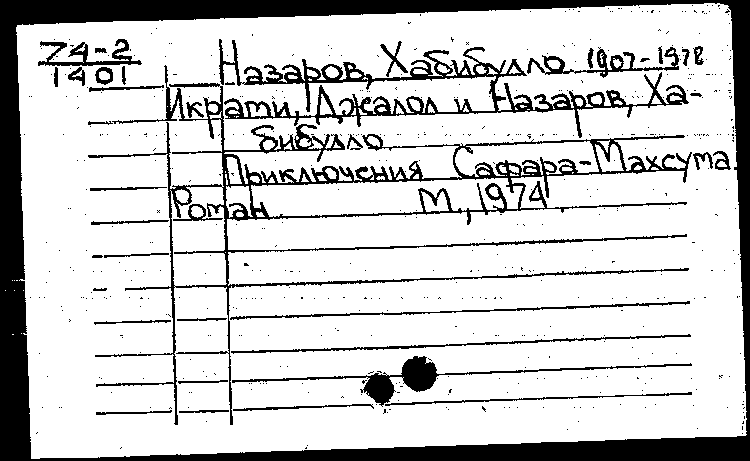 74-2
1401
Назаров, Хабибулло 1907-1978
Икрами, Джалол и Назаров, Ха-
бибулло
Приключения Сафара-Махсума.
Роман М., 1974.